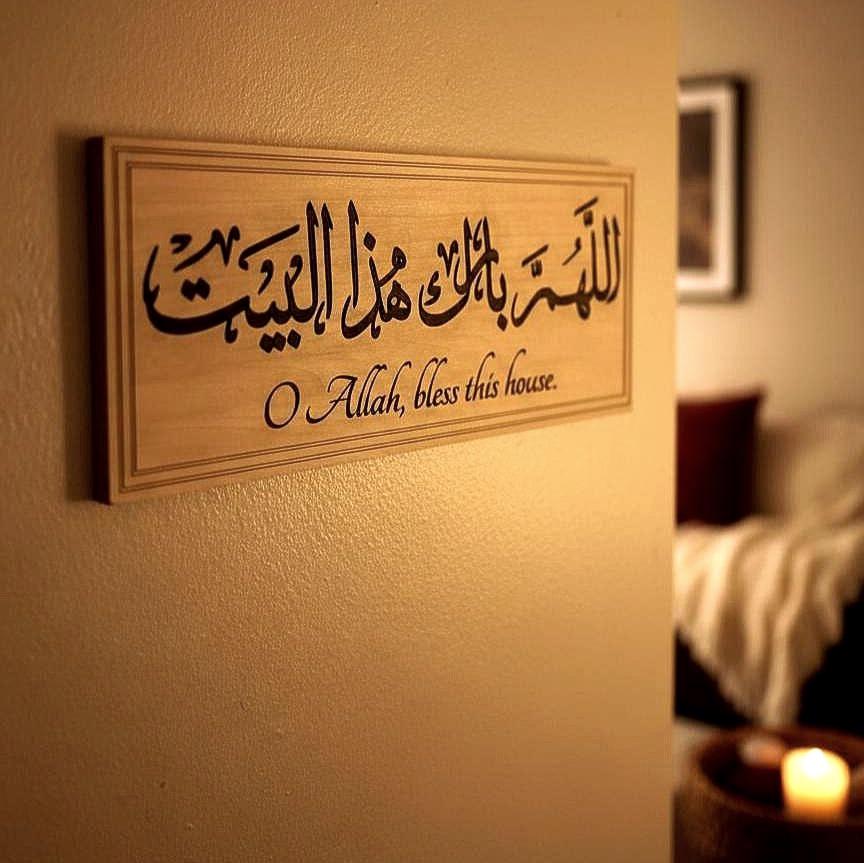 اللَّهُمَّ بَارِك هٰذَا البَيَت
O Allah, bless this house.